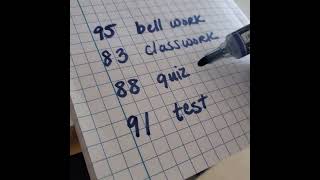 95 bell work
83 classwork
88 quiz
91 test